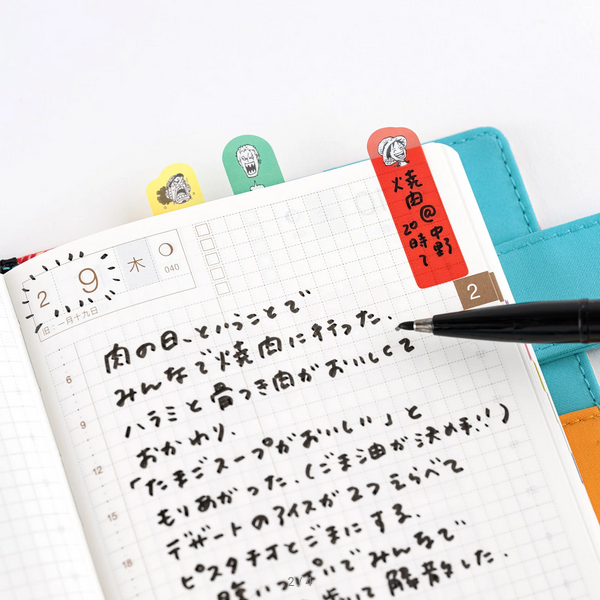 焼肉@中野
20時〜
2 9 木
040
旧：一月十九日
2
肉の日、ということで
6
みんなで焼肉に行った。
ハラミと骨つき肉がおいしくて
9
おかわり。
「たまごスープがおいしい」と
12
もりあがった。(ごま油が決め手!!)
デザートのアイスが2つえらべて
15
ピスタチオとごまにする。
腹いっぱいでみんなで
18
歩いて解散した。